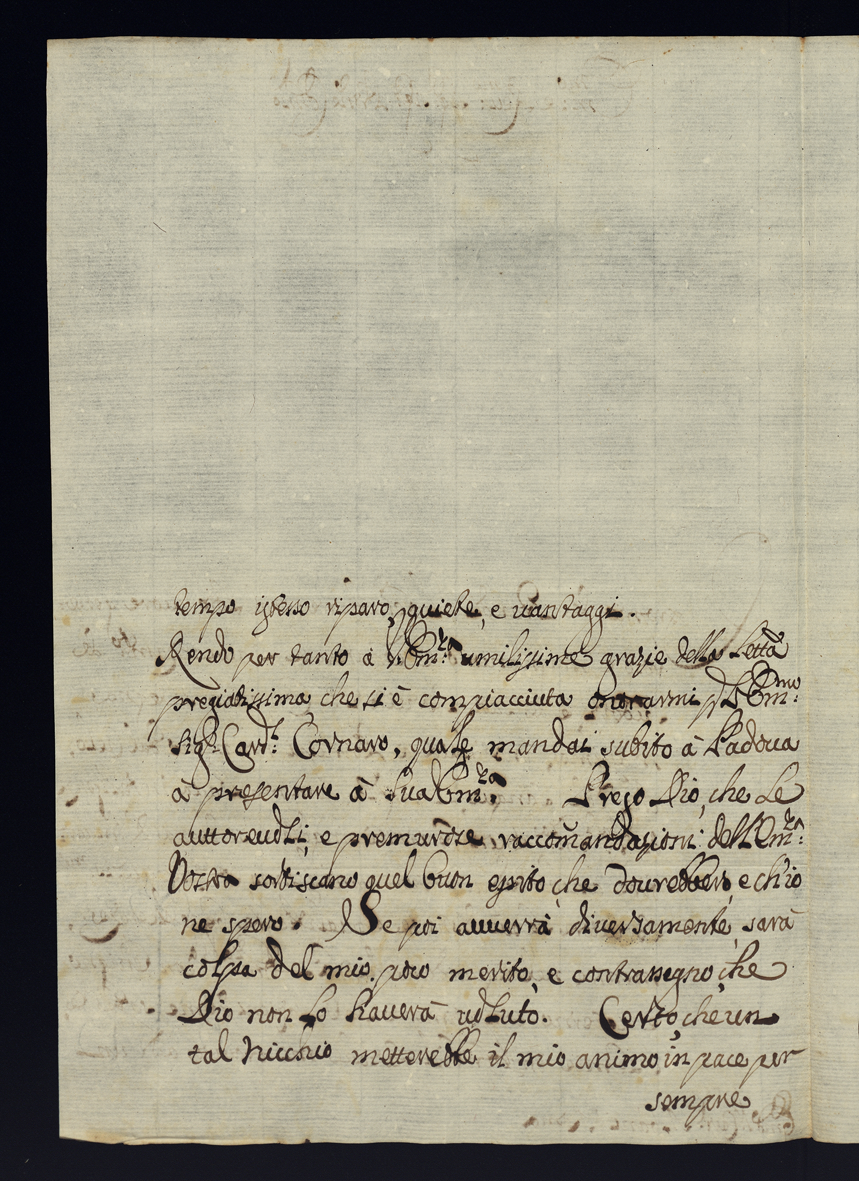 tempo istesso riparo, quiete, e vantaggi.
Rendo per tanto à V. Em.za umilissime grazie della Lett.a
pregiatissima, che si è compiacciuta onorarmi p l'Em.mo
Sig.r Card.l Cornaro, quale mandai subito à Padova
à presentare à Sua Em.za. Prego Dio, che Le
auttorevoli, e premurose raccomãndazioni dell'Em.za
Vostra sortiscano quel buon esito, che dourebbero, e ch'io
ne spero. Se poi auuerrà diversamente, sarà
colpa del mio poco merito, e contrassegno, che
Dio non Lo hauerà voluto. Certo, che un
tal Nicchio metterebbe il mio animo in pace per
sempre